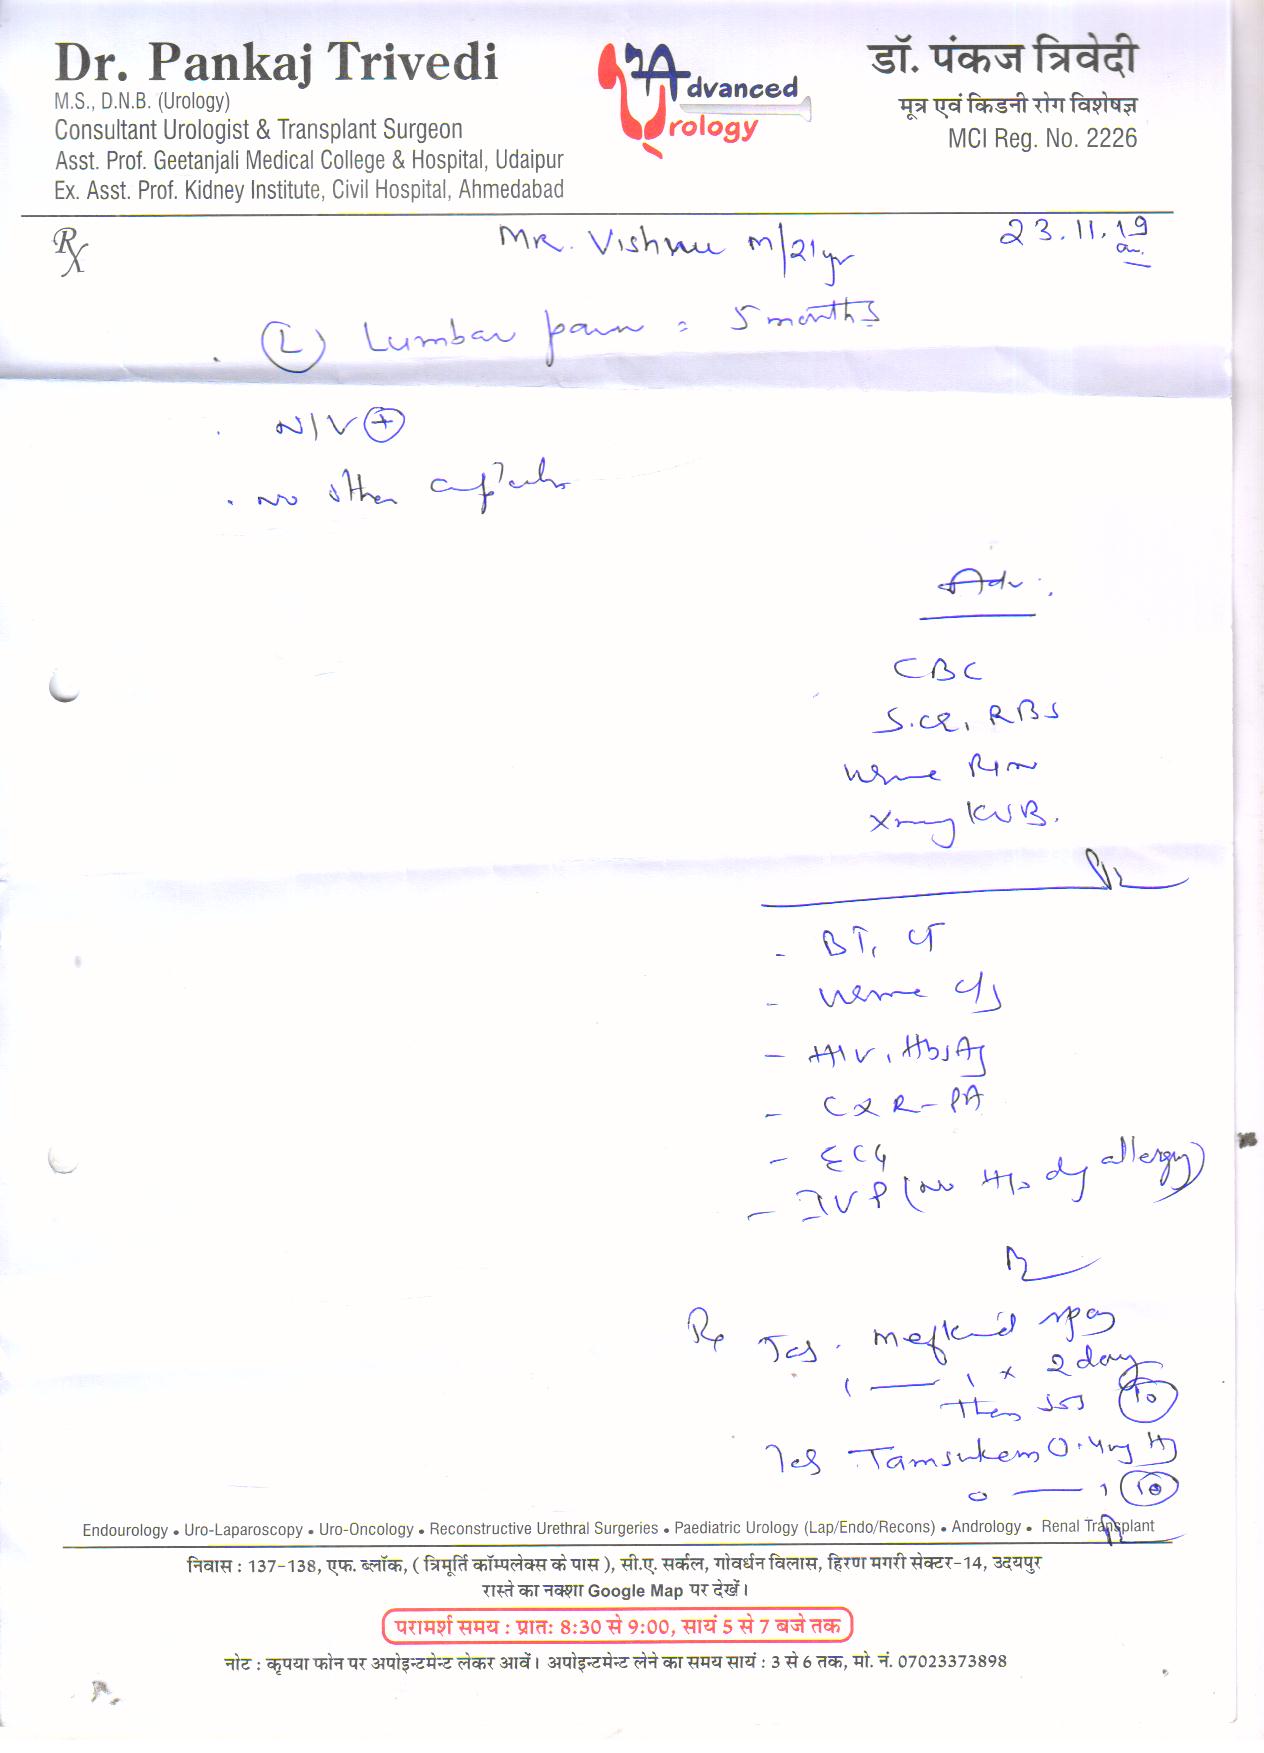 Dr. Pankaj Trivedi
M.S., D.N.B. (Urology)
Consultant Urologist & Transplant Surgeon
Asst. Prof. Geetanjali Medical College & Hospital, Udaipur
Ex. Asst. Prof. Kidney Institute, Civil Hospital, Ahmedabad
Advanced
Urology
डॉ. पंकज त्रिवेदी
मूत्र एवं किडनी रोग विशेषज्ञ
MCI Reg. No. 2226
Rx
Mr. Vishnu M/21yr
23.11.19
(L) Lumbar pain = 5 months
N/V (+)
no other
Adv.
CBC
S.CR, RBS
Urine R/m
Xray KUB.
- BT, CT
- Urine C/S
- HIV, HbsAg
- CXR-PA
- ECG
- IVP (no H/o dy allergy)
Rx
Tab. Mefkind spas
1 — 1 x 2 day
Then SOS (10)
Tab Tamsukem 0.4mg
0 — 1 (10)
Endourology • Uro-Laparoscopy • Uro-Oncology • Reconstructive Urethral Surgeries • Paediatric Urology (Lap/Endo/Recons) • Andrology • Renal Transplant
निवास : 137-138, एफ. ब्लॉक, ( त्रिमूर्ति कॉम्पलेक्स के पास ), सी.ए. सर्कल, गोवर्धन विलास, हिरण मगरी सेक्टर-14, उदयपुर
रास्ते का नक्शा Google Map पर देखें।
परामर्श समय : प्रातः 8:30 से 9:00, सायं 5 से 7 बजे तक
नोट : कृपया फोन पर अपोइन्टमेन्ट लेकर आवें। अपोइन्टमेन्ट लेने का समय सायं : 3 से 6 तक, मो. नं. 07023373898